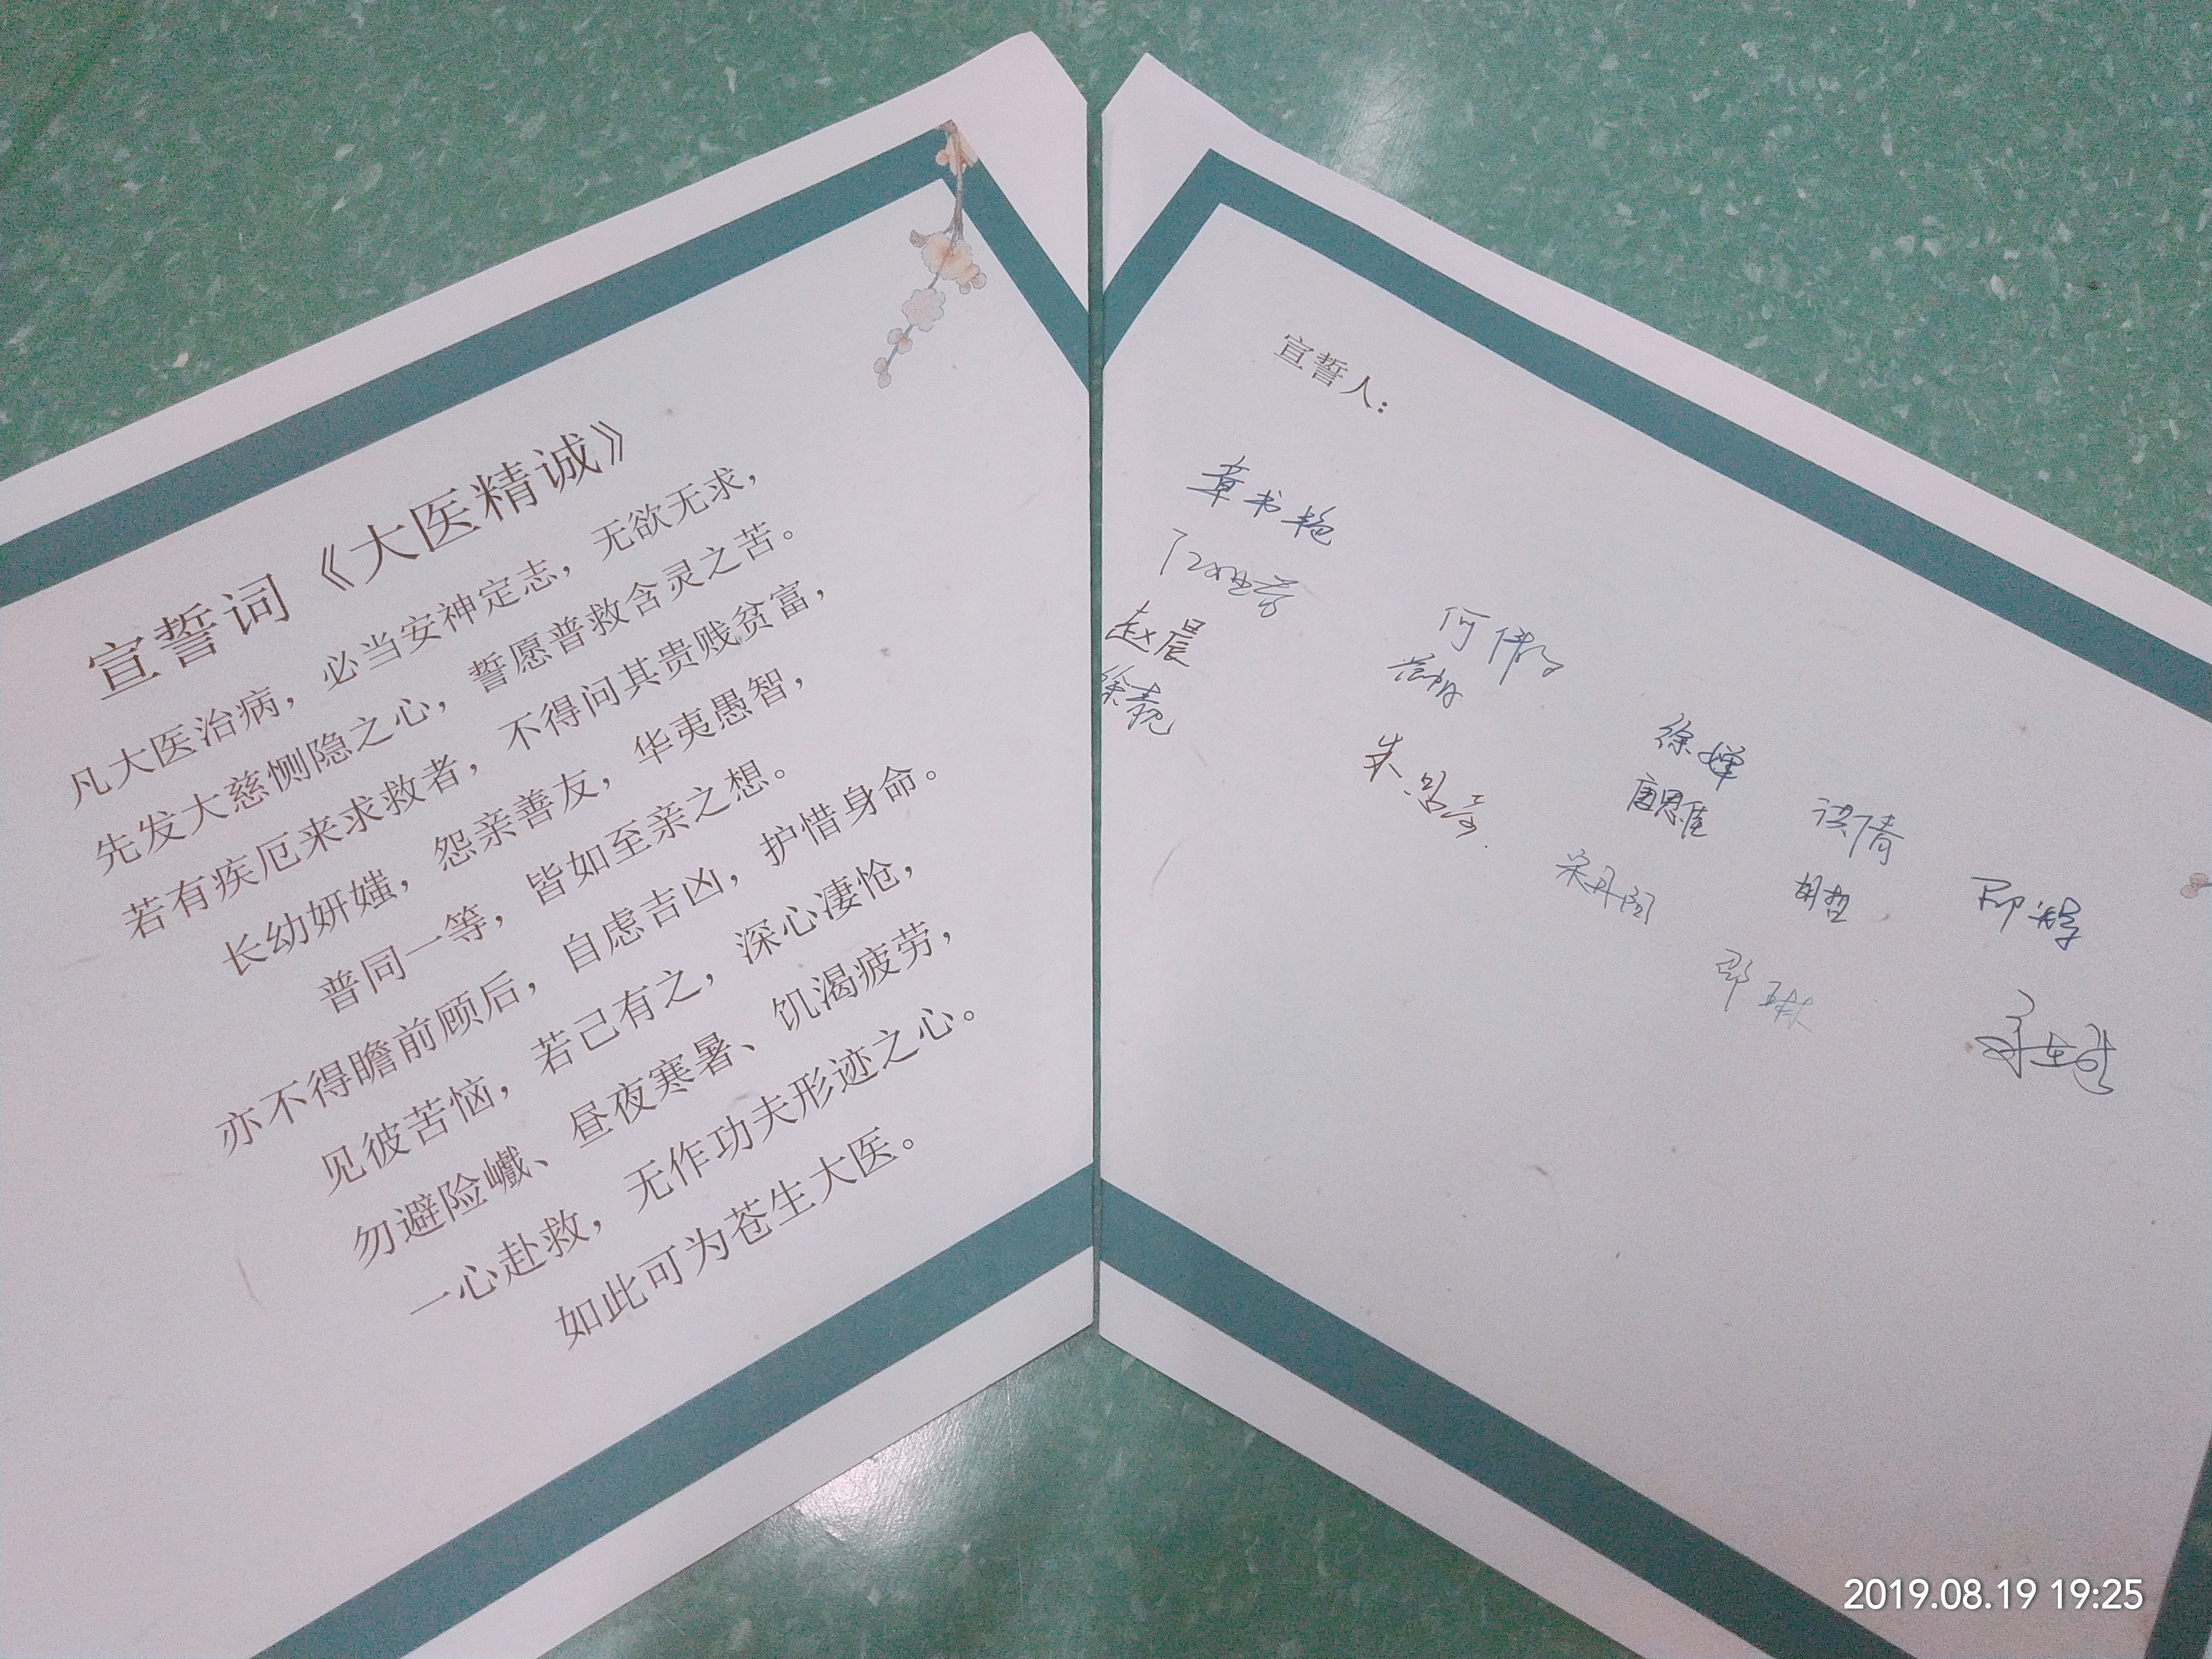 宣誓词《大医精诚》
凡大医治病，必当安神定志，无欲无求，
先发大慈恻隐之心，誓愿普救含灵之苦。
若有疾厄来求救者，不得问其贵贱贫富，
长幼妍媸，怨亲善友，华夷愚智，
普同一等，皆如至亲之想。
亦不得瞻前顾后，自虑吉凶，护惜身命。
见彼苦恼，若己有之，深心凄怆，
勿避险巇、昼夜寒暑、饥渴疲劳，
一心赴救，无作功夫形迹之心。
如此可为苍生大医。
宣誓人：
章书艳
赵晨
徐婵
唐思佳
胡哲
2019.08.19 19:25